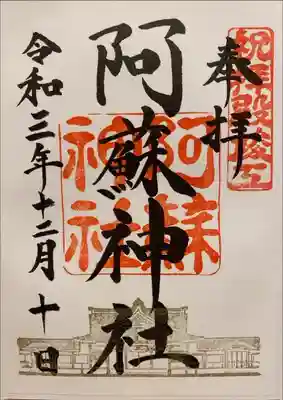 奉拝
祝拝殿竣工
阿蘇神社
阿蘇
神社
令和三年十二月十日